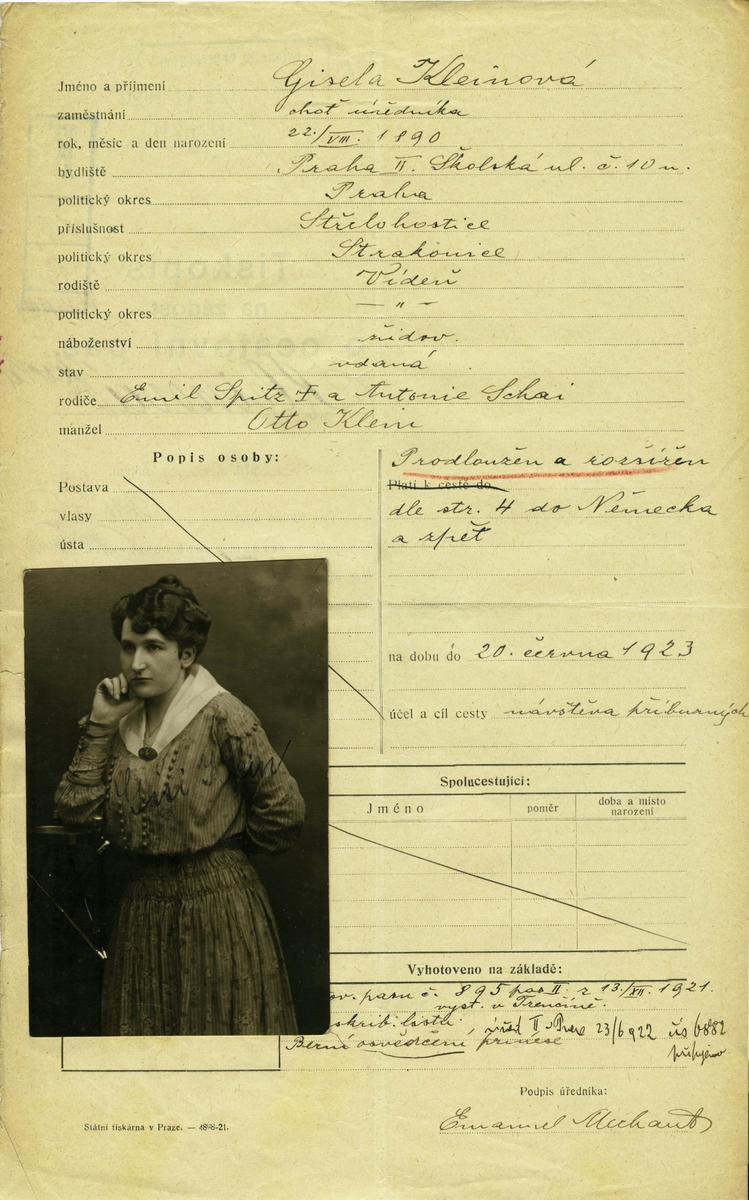 Jméno a příjmení Gisela Kleinová
zaměstnání choť úředníka
rok, měsíc a den narození 22./VIII. 1890
bydliště Praha II. Školská ul. č. 10 n.
politický okres Praha
příslušnost Střelohostice
politický okres Strakonice
rodiště Vídeň
politický okres — " —
náboženství židov.
stav vdaná
rodiče Emil Spitz † a Antonie Schai
manžel Otto Klein
Popis osoby:
Postava
vlasy
ústa
Prodloužen a rozšířen
Platí k cestě do
dle str. 4 do Německa
a zpět
na dobu do 20. června 1923
účel a cíl cesty návštěva příbuzných
Spolucestující:
Jméno poměr doba a místo narození
Vyhotoveno na základě:
ov. pasu č. 895 pas II. z 13./XII. 1921.
vyst. v Trenčíně.
skrib. listu.
Berní osvědčení přinese
23/6 922 6882
Podpis úředníka:
Emanuel
Státní tiskárna v Praze. — 4898-21.